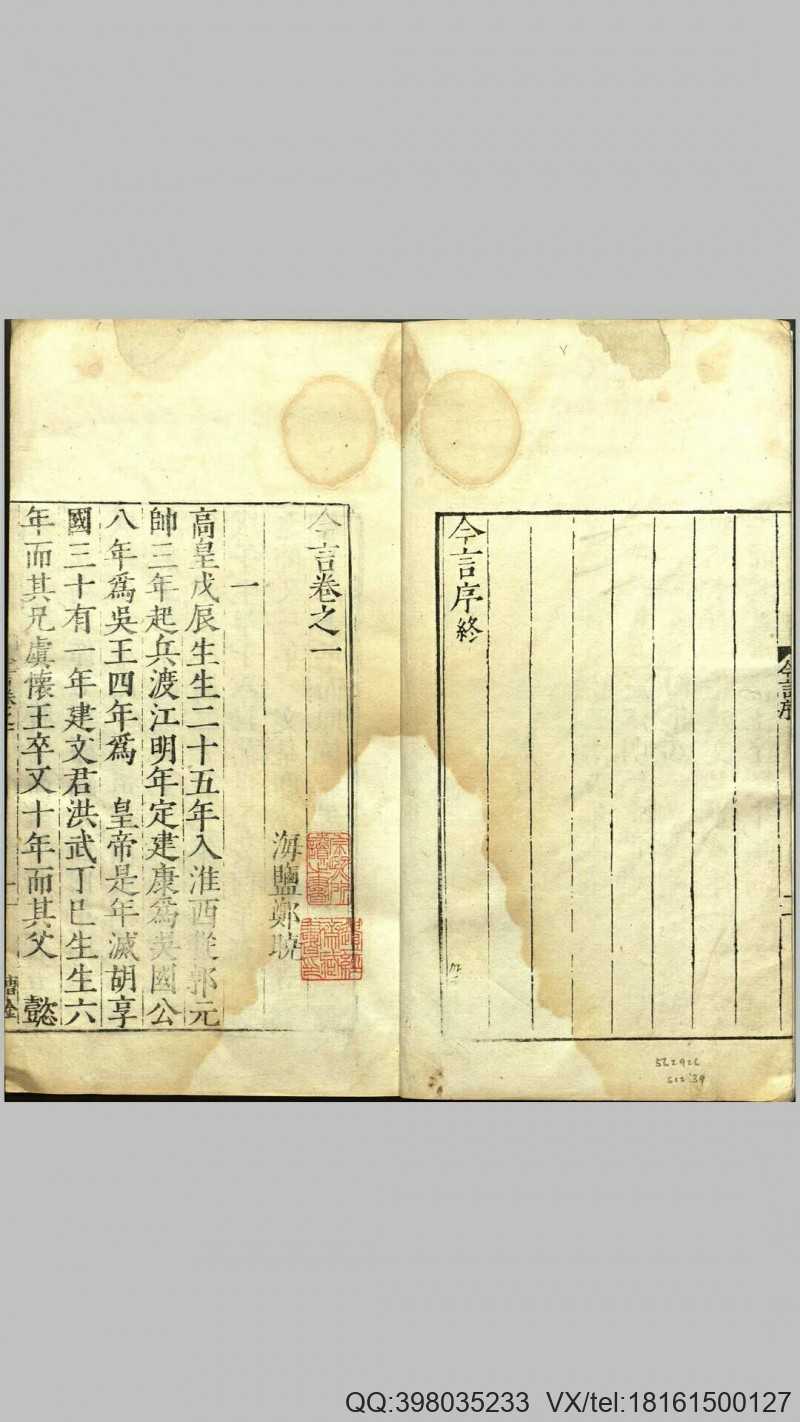 今言序
今言序終
今言卷之一
海鹽鄭曉
一
高皇戊辰生生二十五年入淮西從郭元
帥三年起兵渡江明年定建康為吳國公
八年爲吳王四年爲　皇帝是年滅胡享
國三十有一年建文君洪武丁巳生生六
年而其兄虞懷王卒又十年而其父　懿
562926
QQ:398035233 VX/tel:18161500127